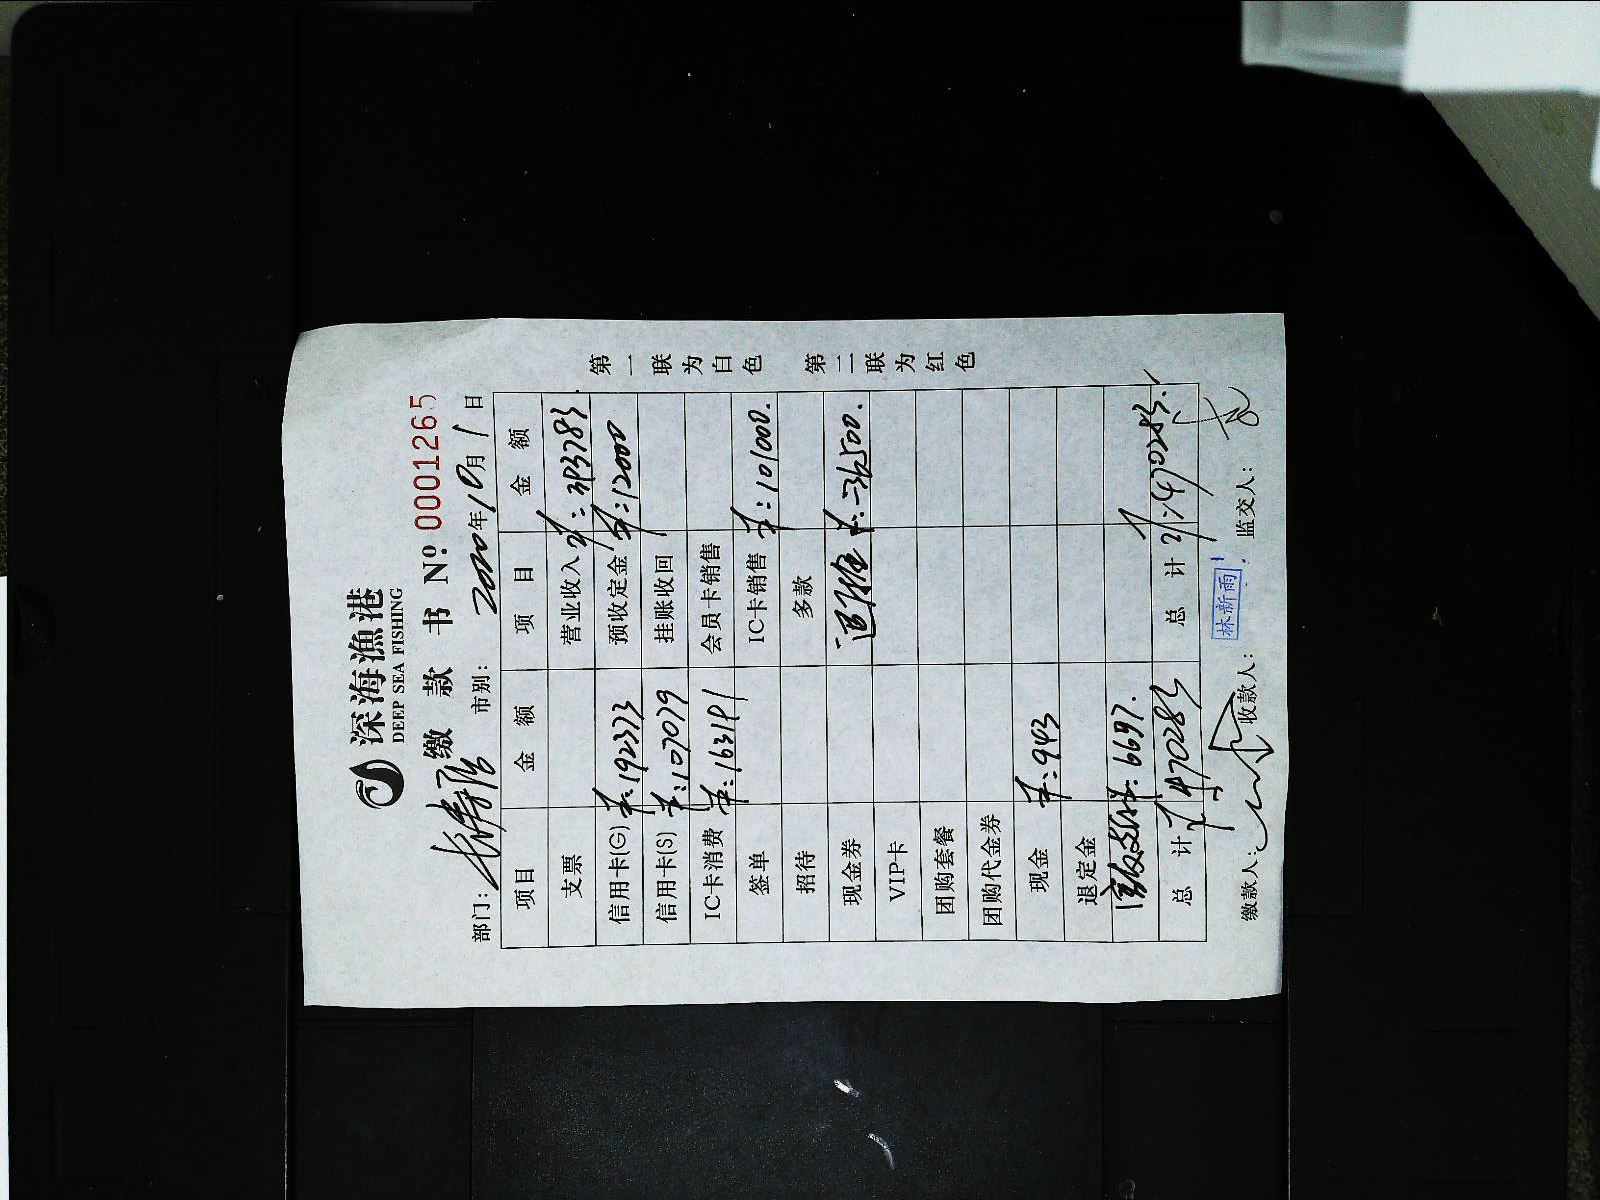 深海漁港
DEEP SEA FISHING
缴 款 书 № 0001265
部门: 长寿路 市别: 2020年10月1日
项目 金 额 项 目 金 额
支票 营业收入 ¥:393783
信用卡(G) ¥:192373 预收定金 ¥:12000
信用卡(S) ¥:107079 挂账收回
IC卡消费 ¥:163191 会员卡销售
签单 IC卡销售 ¥:101000.
招待 多款
现金券 ¥:-36500.
VIP卡
团购套餐
团购代金券
现金 ¥:943
退定金
¥:6697.
总 计 ¥:470283 总 计 ¥:470283.
缴款人: 收款人: 林新雨 监交人:
第一联为白色 第二联为红色